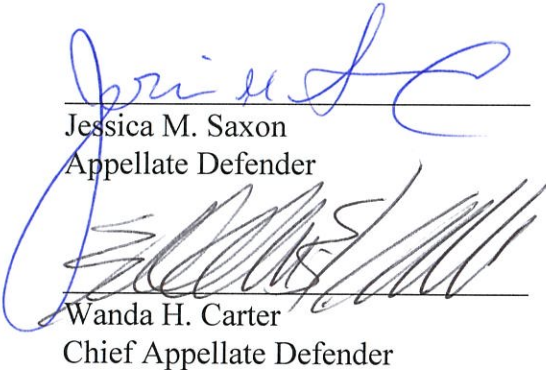 Jessica M. Saxon
Appellate Defender
Wanda H. Carter
Chief Appellate Defender